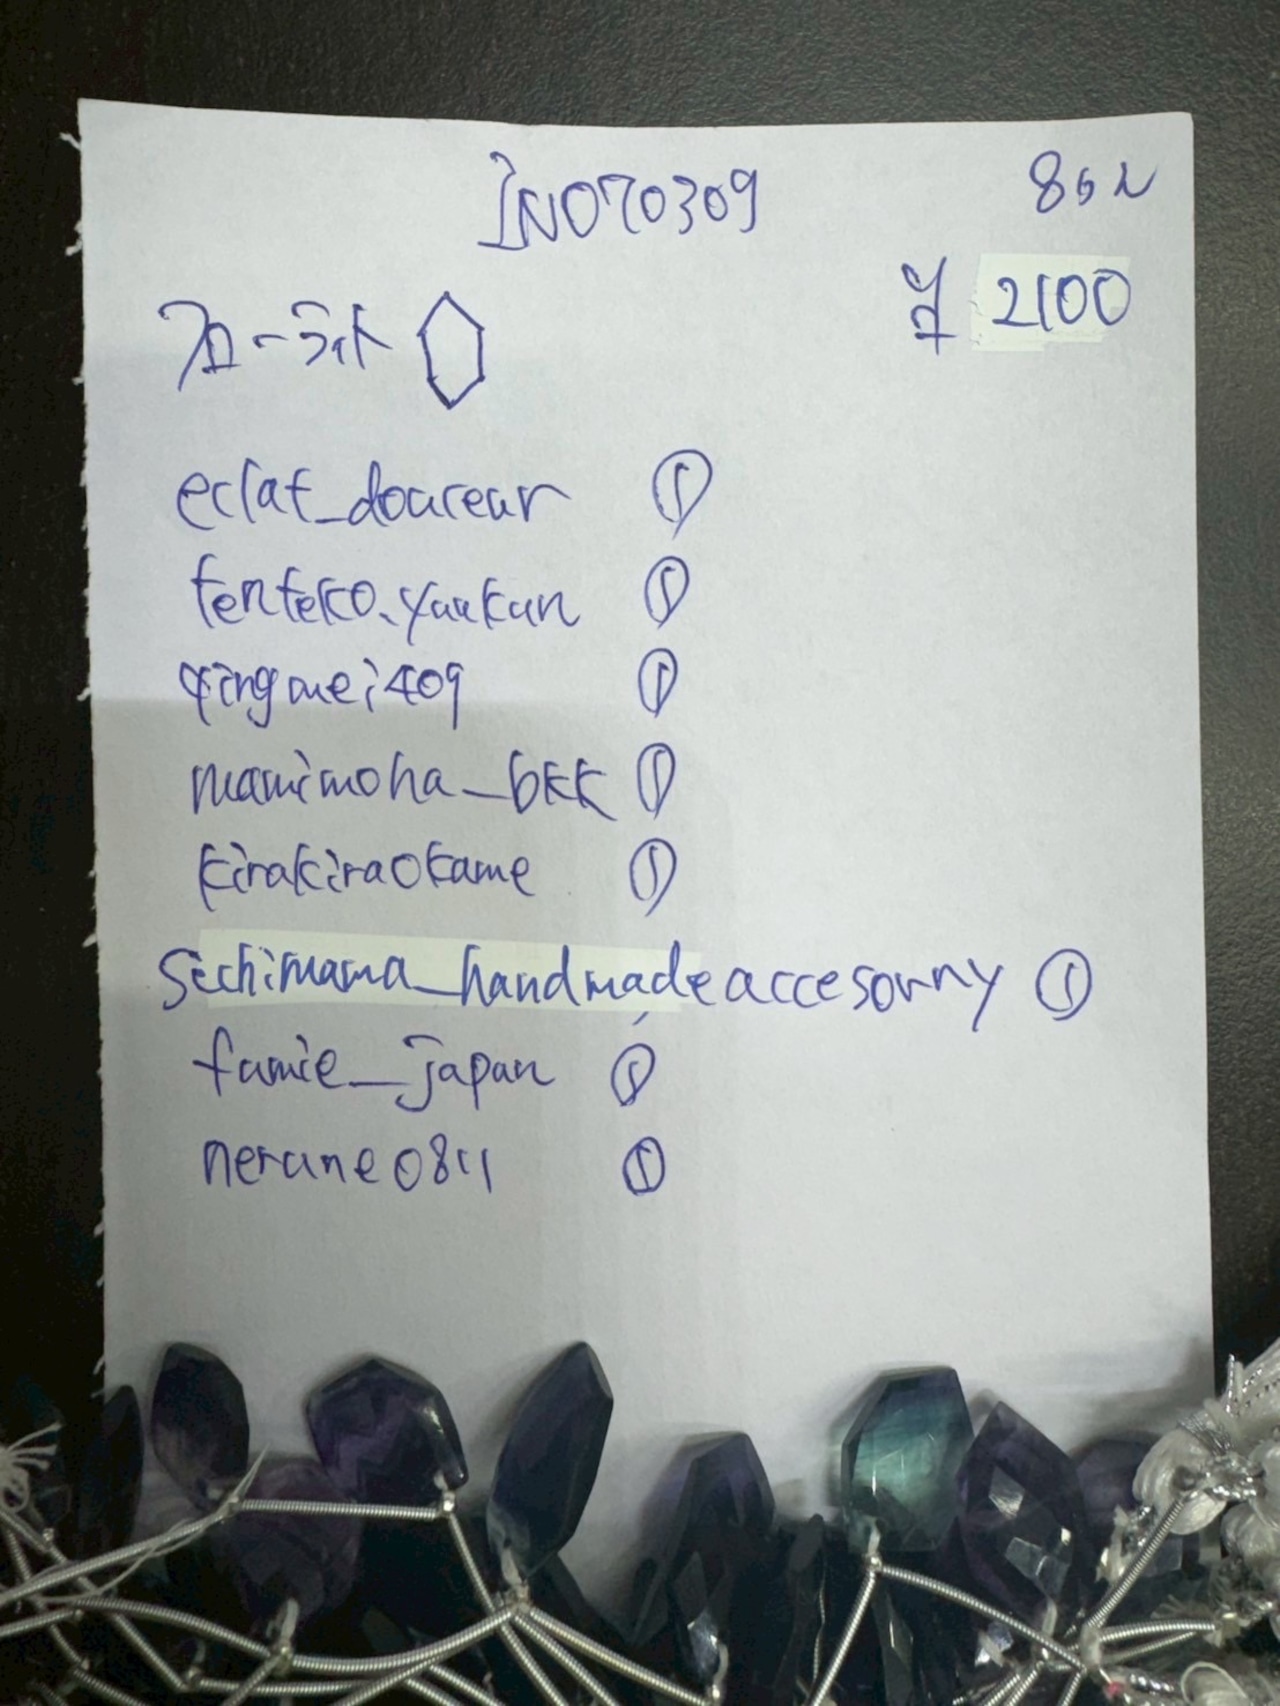 IN070309
86ル
¥ 2100
フローライト
eclat_douceur ①
tenteko.yuukun ①
qingmei409 ①
mamimoha_bkk ①
kirakiraokame ①
sechimama_handmadeaccesorry ①
fumie_japan ①
nerune0811 ①